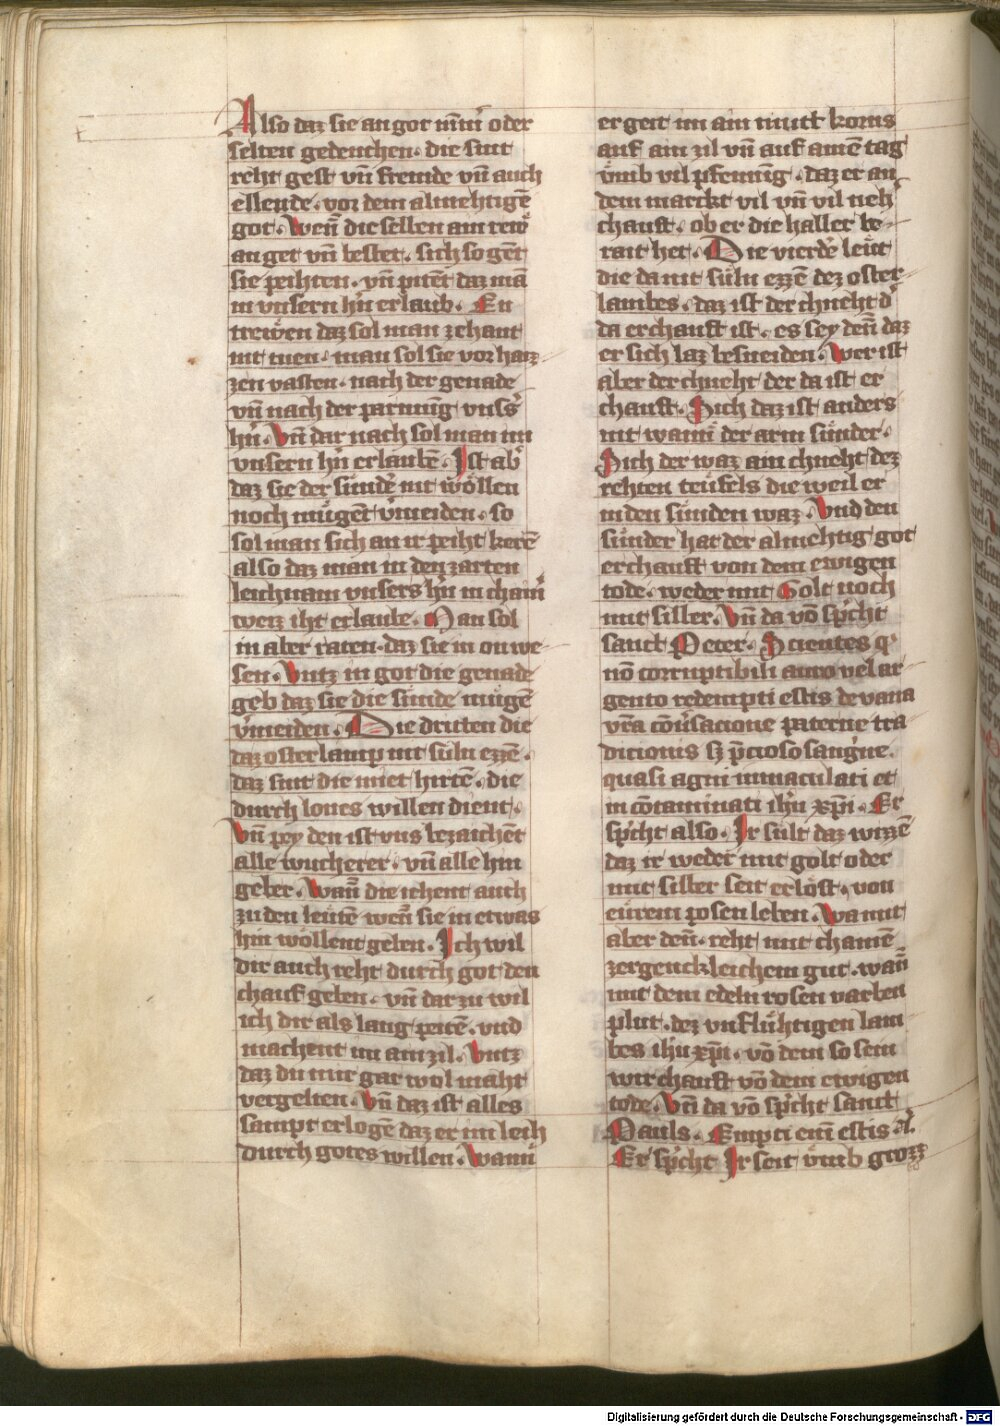 Also daz sie an got nim̄ oder
selten gedenchen. die sint
reht gest vn̄ fremde vn̄ auch
ellende. vor dem almehtigē
got. Wen̄ die selben ain rew
an get vn̄ bestet. sich so gent
sie peihten. vn̄ pitent daz mā
in vnsern hr̄n erlaub. En
trewen daz sol man zehant
nit tuen. man sol sie vor haiz
zen vasten. nach der genade
vn̄ nach der parmūg vnsˢ
hr̄n. Vn̄ dar nach sol man im
vnsern hr̄n erlaubē. Ist abˢ
daz sie der sündē nit wöllen
noch mügent vˢmeiden. so
sol man sich an ir peiht kerē
also daz man in den zarten
leichnam vnsers hr̄n in chainˢ
weiz iht erlaube. Man sol
in aber raten. daz sie in on we
sen. Vntz in got die genade
geb daz sie die sünde mügē
vˢmeiden. Die dritten die
daz osterlamp nit süln ezzē.
daz sint die miet hirtē. die
durch lones willen dient.
Vn̄ pey den ist vns bezaichēt
alle wucherer. vn̄ alle hin
geber. Wan̄ die iehent auch
zu den leutē wen̄ sie in etwas
hin wöllent geben. Ich wil
dir auch reht durch got den
chauf geben. vn̄ dar zu wil
ich dir als lang peitē. vnd
machent im ain zil. Vntz
daz du mir gar wol maht
vergelten. Vn̄ daz ist alles
sampt erlogē daz er im leih
durch gotes willen. Wann
er geit im ain mutt korns
auf ain zil vn̄ auf ainē tag
vm̄b vil pfenning. daz er an
dem marckt vil vn̄ vil neh
chauft. ob er die haller be
rait het. Die vierdē leut
die da nit süln ezzē dez oster
lambes. daz ist der chneht dˢ
da erchauft ist. es sey den̄ daz
er sich laz besneiden. Wer ist
aber der chneht der da ist er
chauft. Sich daz ist anders
nit wann̄ der arm sünder.
Sich der waz ain chneht dez
rehten teufels die weil er
in den sünden waz. Vnd den
sünder hat der almehtig got
erchauft von dem ewigen
tode. weder mit Golt noch
mit silber. Vn̄ da vō sp̄cht
sanct Peter. Scientes qˢ
nō corruptibili auro vel ar
gento redempti estis de vana
vr̄a cōuˢsacione paterne tra
dicionis sꝫ p̄cioso sangˢne.
quasi agni inmaculati et
in cōtaminati ihˢu xp̄i. Er
sp̄cht also. Ir sült daz wizzē
daz ir weder mit golt oder
mit silber seit erlöst. von
eurem posen leben. Wa mit
aber den̄. reht mit chainē
zergencklichem gut. wan̄
mit dem edeln rosen varben
plut. dez vnflühtigen lam
bes ihˢu xp̄i. vō dem so sein
wir chauft vō dem ewigen
tode. Vn̄ da vō sp̄cht sanct
Pauls. Empti eni estis
Er sp̄cht Ir seit vm̄b grozz